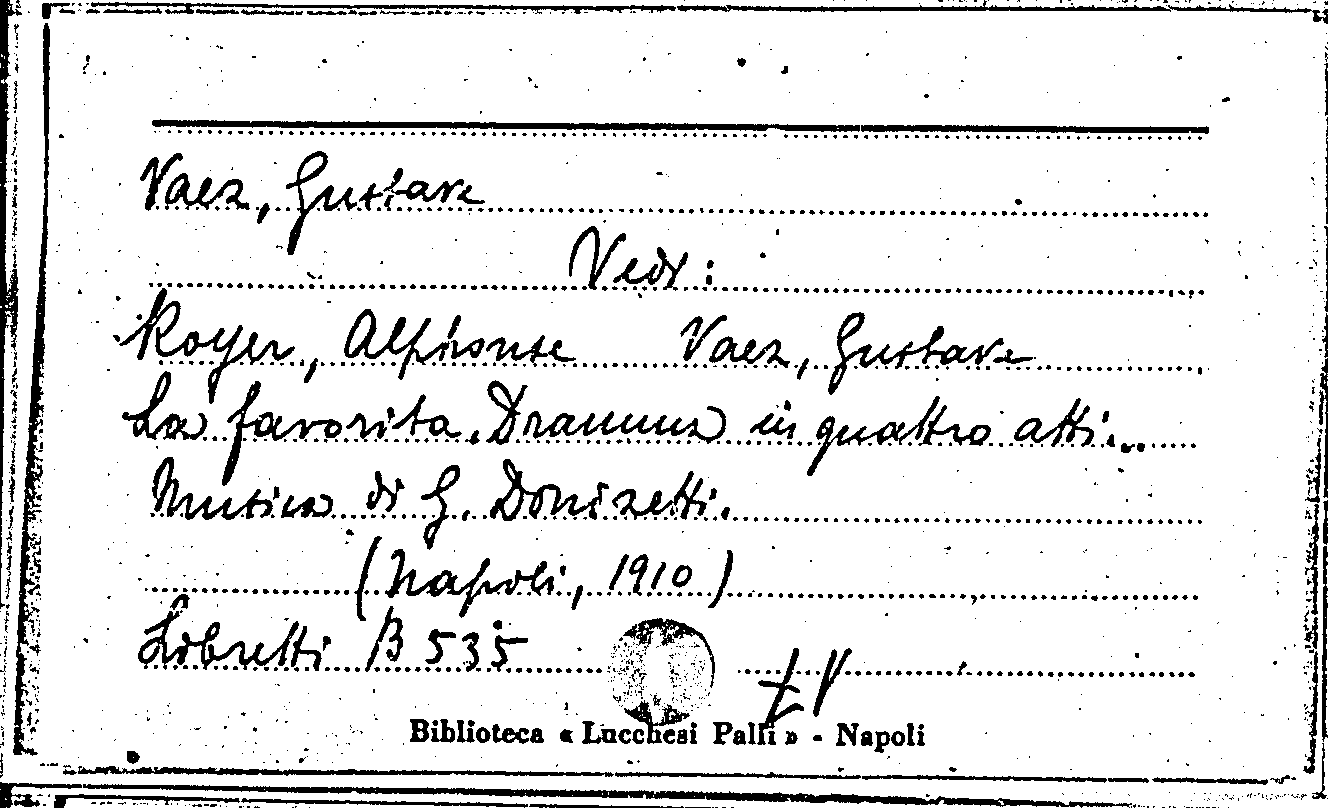 Vaez, Gustave
Vedi:
Royer, Alphonse Vaez, Gustave
La favorita. Dramma in quattro atti...
Musica di G. Donizetti.
(Napoli, 1910)
Libretti B 535
Biblioteca « Lucchesi Palli » - Napoli